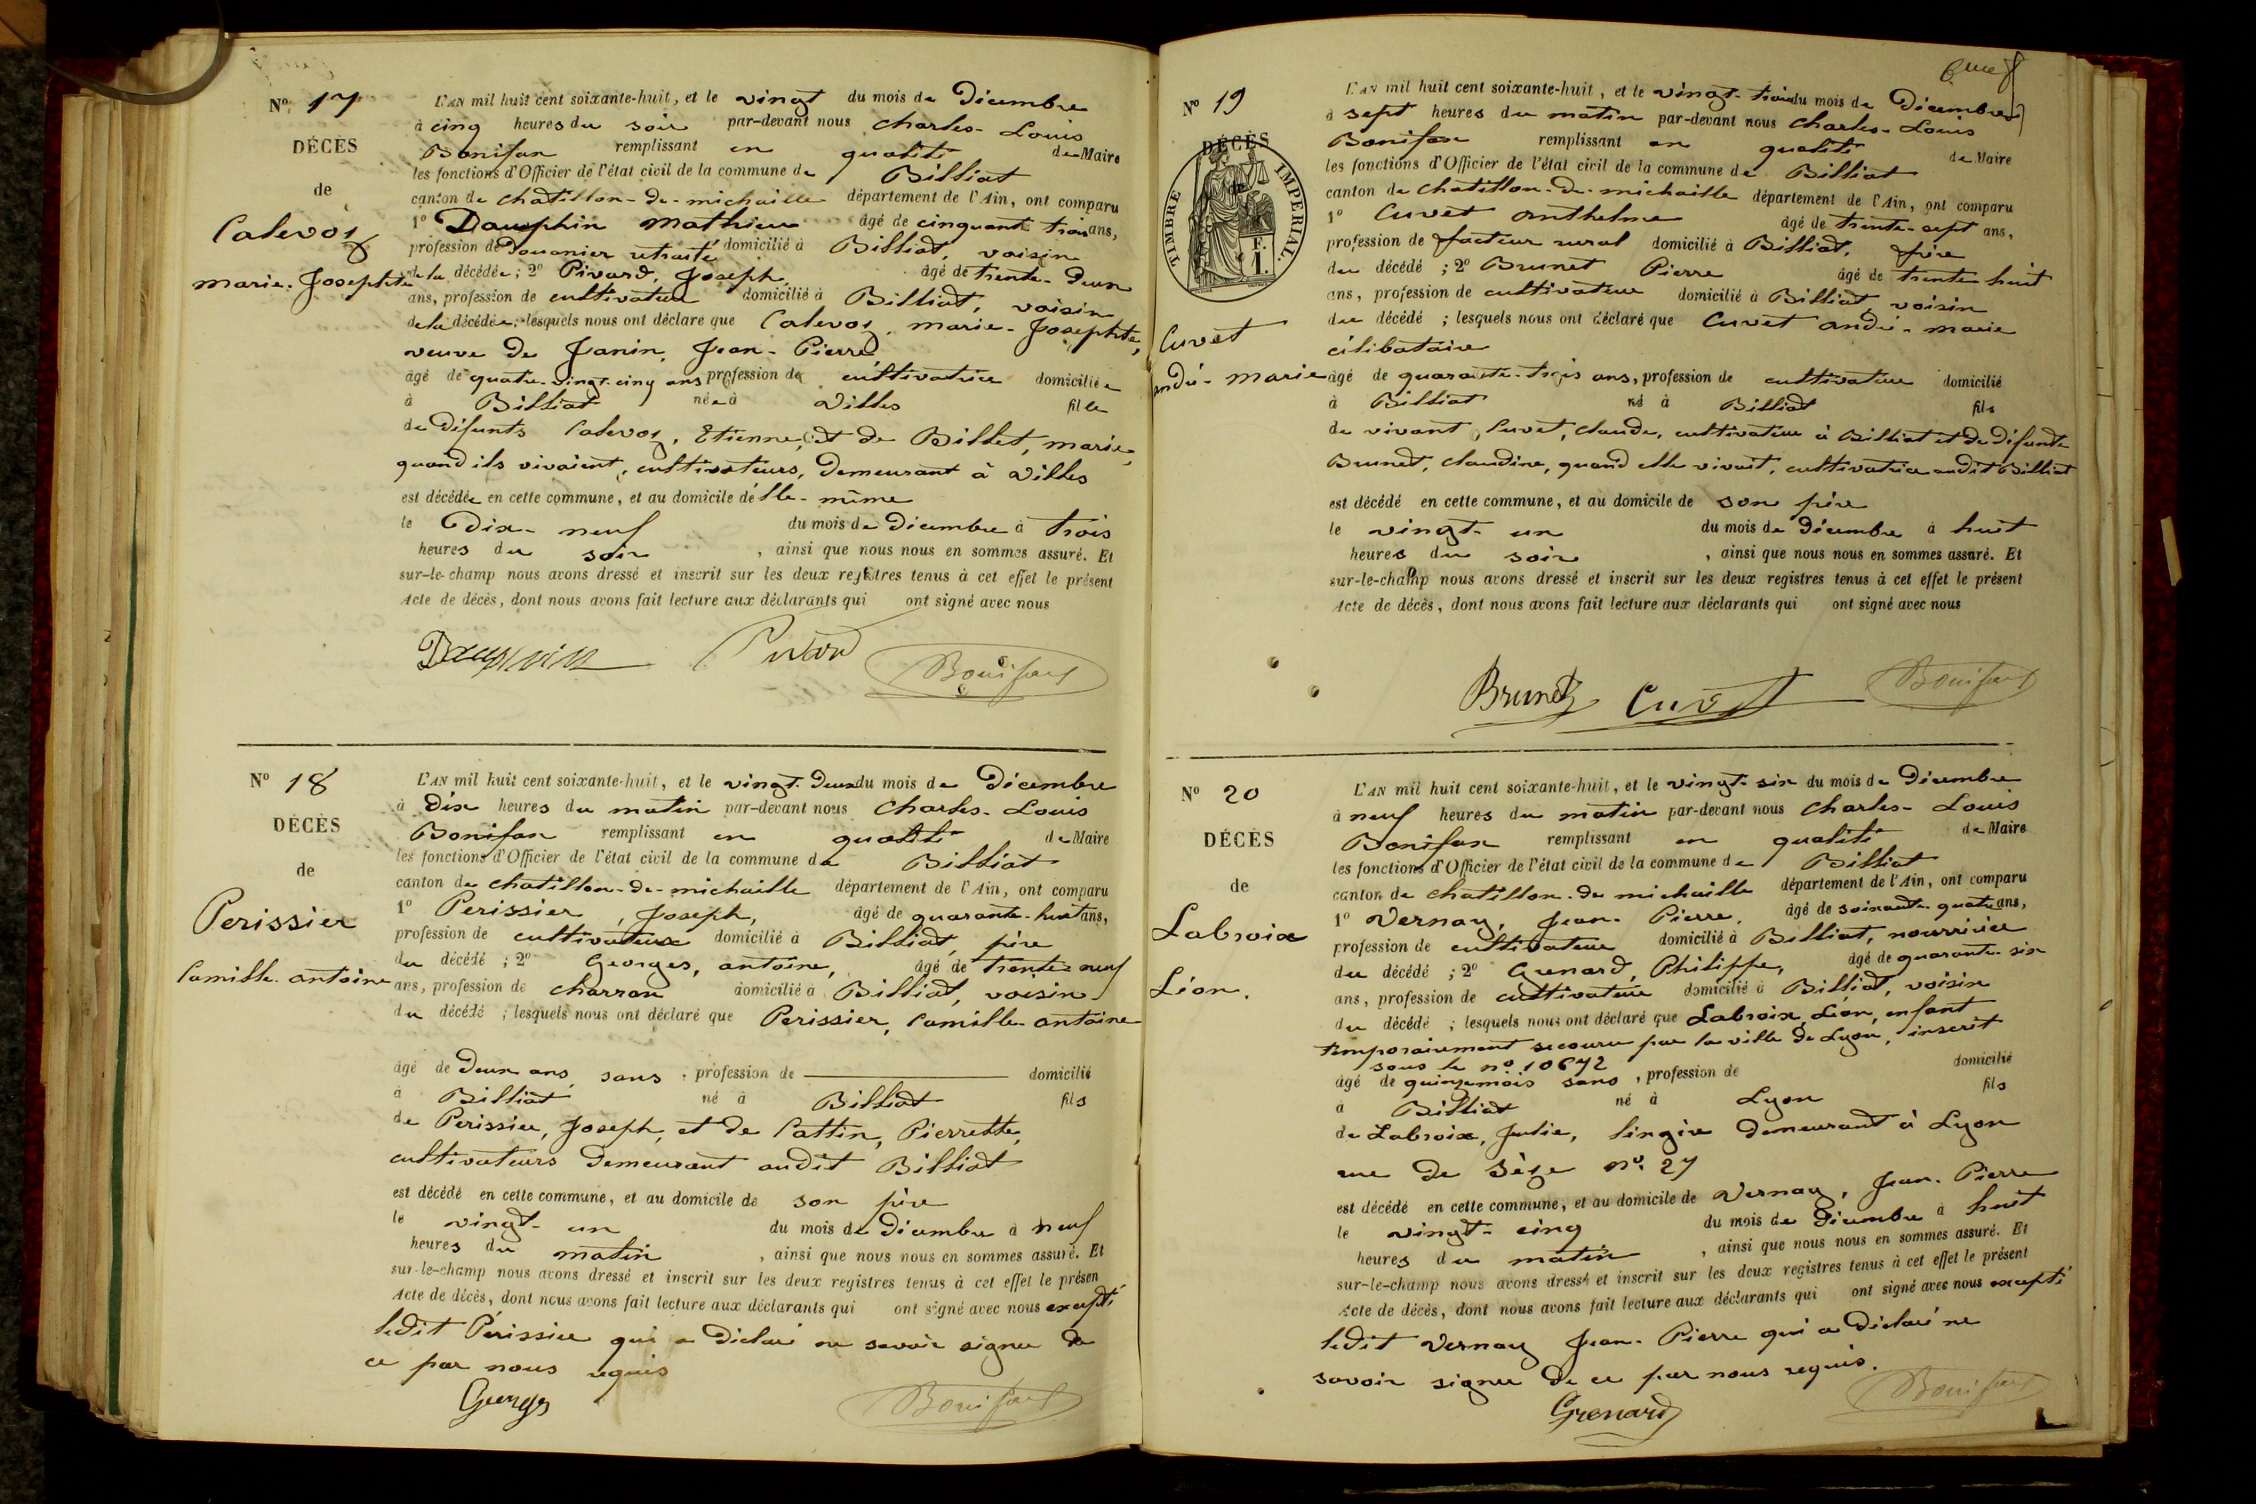 No 17
DÉCÈS
de
Calevoz
marie-Josephte
L'AN mil huit cent soixante-huit, et le vingt du mois de Décembre
à cinq heures du soir par-devant nous Charles-Louis
Bonifax remplissant en qualité de Maire
les fonctions d'Officier de l'état civil de la commune de Billiat
canton de chatillon-de-michaille département de l'Ain, ont comparu
1º Dauphin Mathieu âgé de cinquante trois ans,
profession de Douanier retraité domicilié à Billiat, voisin
de la décédée ; 2º Pivard, Joseph, âgé de trente-deux
ans, profession de cultivateur domicilié à Billiat, voisin
de la décédée ; lesquels nous ont déclaré que Calevoz, marie-Josephte,
veuve de Janin, Jean-Pierre
âgé de quatre-vingt-cinq ans profession de cultivatrice domiciliée
à Billiat née à Villes fille
de défunts Calevoz, Etienne, et de Billet, marie,
quand ils vivaient, cultivateurs, demeurant à Villes
est décédée en cette commune, et au domicile d'elle-même
le Dix-neuf du mois de Décembre à trois
heures du soir , ainsi que nous nous en sommes assuré. Et
sur-le-champ nous avons dressé et inscrit sur les deux registres tenus à cet effet le présent
Acte de décès, dont nous avons fait lecture aux déclarants qui ont signé avec nous
Dauphin Pivard Bonifax
No 18
DÉCÈS
de
Perissier
Camille-antoine
L'AN mil huit cent soixante-huit, et le vingt-Deux du mois de Décembre
à Dix heures du matin par-devant nous Charles-Louis
Bonifax remplissant en qualité de Maire
les fonctions d'Officier de l'état civil de la commune de Billiat
canton de chatillon-de-michaille département de l'Ain, ont comparu
1º Perissier, Joseph, âgé de quarante-huit ans,
profession de cultivateur domicilié à Billiat, père
du décédé ; 2º Georges, antoine, âgé de trente-neuf
ans, profession de charron domicilié à Billiat, voisin
du décédé ; lesquels nous ont déclaré que Perissier, Camille-antoine
âgé de Deux ans, sans , profession de domicilié
à Billiat né à Billiat fils
de Périssier, Joseph, et de Cattin, Pierrette,
cultivateurs Demeurant audit Billiat
est décédé en cette commune, et au domicile de son père
le vingt-un du mois de Décembre à neuf
heures du matin , ainsi que nous nous en sommes assuré. Et
sur-le-champ nous avons dressé et inscrit sur les deux registres tenus à cet effet le présen
Acte de décès, dont nous avons fait lecture aux déclarants qui ont signé avec nous excepté
ledit Périssier qui a Déclaré ne savoir signer de
ce par nous requis
Georges Bonifax
No 19
DÉCÈS
de
TIMBRE IMPERIAL.
F.
1.
Cuvet
andré-marie
L'AN mil huit cent soixante-huit, et le vingt-trois du mois de Décembre
à sept heures du matin par-devant nous Charles-Louis
Bonifax remplissant en qualité de Maire
les fonctions d'Officier de l'état civil de la commune de Billiat
canton de chatillon-de-michaille département de l'Ain, ont comparu
1º Cuvet anthelme âgé de trente-sept ans,
profession de facteur rural domicilié à Billiat, frère
du décédé ; 2º Brunet Pierre âgé de trente huit
ans, profession de cultivateur domicilié à Billiat, voisin
du décédé ; lesquels nous ont déclaré que Cuvet andré-marie
célibataire
âgé de quarante-trois ans, profession de cultivateur domicilié
à Billiat né à Billiat fils
de vivant, Cuvet, claude, cultivateur à Billiat et de défunte
Brunet, claudine, quand elle vivait, cultivatrice audit Billiat
est décédé en cette commune, et au domicile de son père
le vingt-un du mois de Décembre à huit
heures du soir , ainsi que nous nous en sommes assuré. Et
sur-le-champ nous avons dressé et inscrit sur les deux registres tenus à cet effet le présent
Acte de décès, dont nous avons fait lecture aux déclarants qui ont signé avec nous
Brunet Cuvet Bonifax
No 20
DÉCÈS
de
Labroix
Léon.
L'AN mil huit cent soixante-huit, et le vingt-six du mois de Décembre
à neuf heures du matin par-devant nous Charles-Louis
Bonifax remplissant en qualité de Maire
les fonctions d'Officier de l'état civil de la commune de Billiat
canton de chatillon-de-michaille département de l'Ain, ont comparu
1º Vernay, Jean-Pierre, âgé de soixante-quatre ans,
profession de cultivateur domicilié à Billiat, nourricier
du décédé ; 2º Grenard, Philippe, âgé de quarante-six
ans, profession de cultivateur domicilié à Billiat, voisin
du décédé ; lesquels nous ont déclaré que Labroix, Léon, enfant
temporairement secouru par la ville de Lyon, inscrit
sous le no 10672
âgé de quinze mois sans , profession de domicilié
à Billiat né à Lyon fils
de Labroix, Julie, lingère demeurant à Lyon
rue de Sèze no 27
est décédé en cette commune, et au domicile de Vernay, Jean-Pierre
le vingt-cinq du mois de Décembre à huit
heures du matin , ainsi que nous nous en sommes assuré. Et
sur-le-champ nous avons dressé et inscrit sur les deux registres tenus à cet effet le présent
Acte de décès, dont nous avons fait lecture aux déclarants qui ont signé avec nous excepté
ledit Vernay Jean-Pierre qui a Déclaré ne
savoir signer de ce par nous requis.
Grenard Bonifax